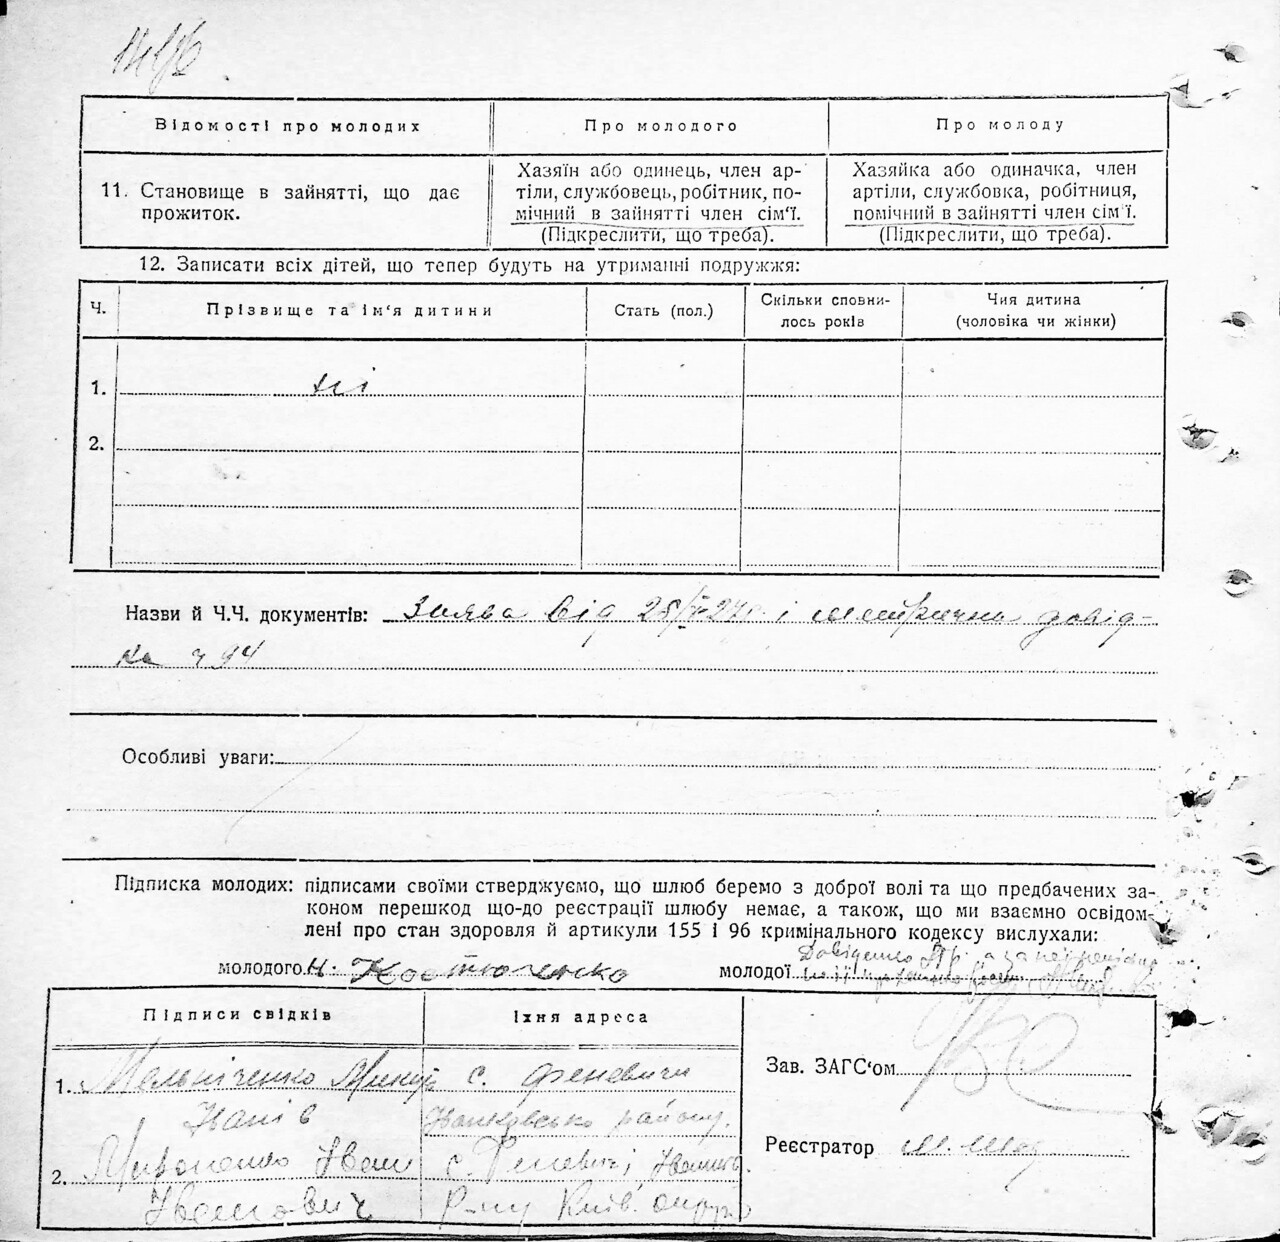 Відомості про молодих
Про молодого
Про молоду
11. Становище в зайнятті, що дає
прожиток.
Хазяїн або одинець, член ар-
тіли, службовець, робітник, по-
мічний в зайнятті член сім'ї.
(Підкреслити, що треба).
Хазяйка або одиначка, член
артіли, службовка, робітниця,
помічний в зайнятті член сім'ї.
(Підкреслити, що треба).
12. Записати всіх дітей, що тепер будуть на утриманні подружжя:
Ч.
Прізвище та ім'я дитини
Стать (пол.)
Скільки сповни-
лось років
Чия дитина
(чоловіка чи жінки)
1. ні
2.
Назви й Ч.Ч. документів: Заява від 25/ 27 і метрична довід-
ка ч 94
Особливі уваги:
Підписка молодих: підписами своїми стверджуємо, що шлюб беремо з доброї волі та що предбачених за-
коном перешкод що-до реєстрації шлюбу немає, а також, що ми взаємно освідом-
лені про стан здоровля й артикули 155 і 96 кримінального кодексу вислухали:
молодого Н. Костюченко
молодої Давіденко
Підписи свідків
Їхня адреса
1. Мельніченко
с. Феневичи
Іванів
Іванковсько району.
2. Мироненко Іван
с. Феневичі, Іванк.
Іванович
Р-ну Київ. округи
Зав. ЗАГС'ом
Реєстратор